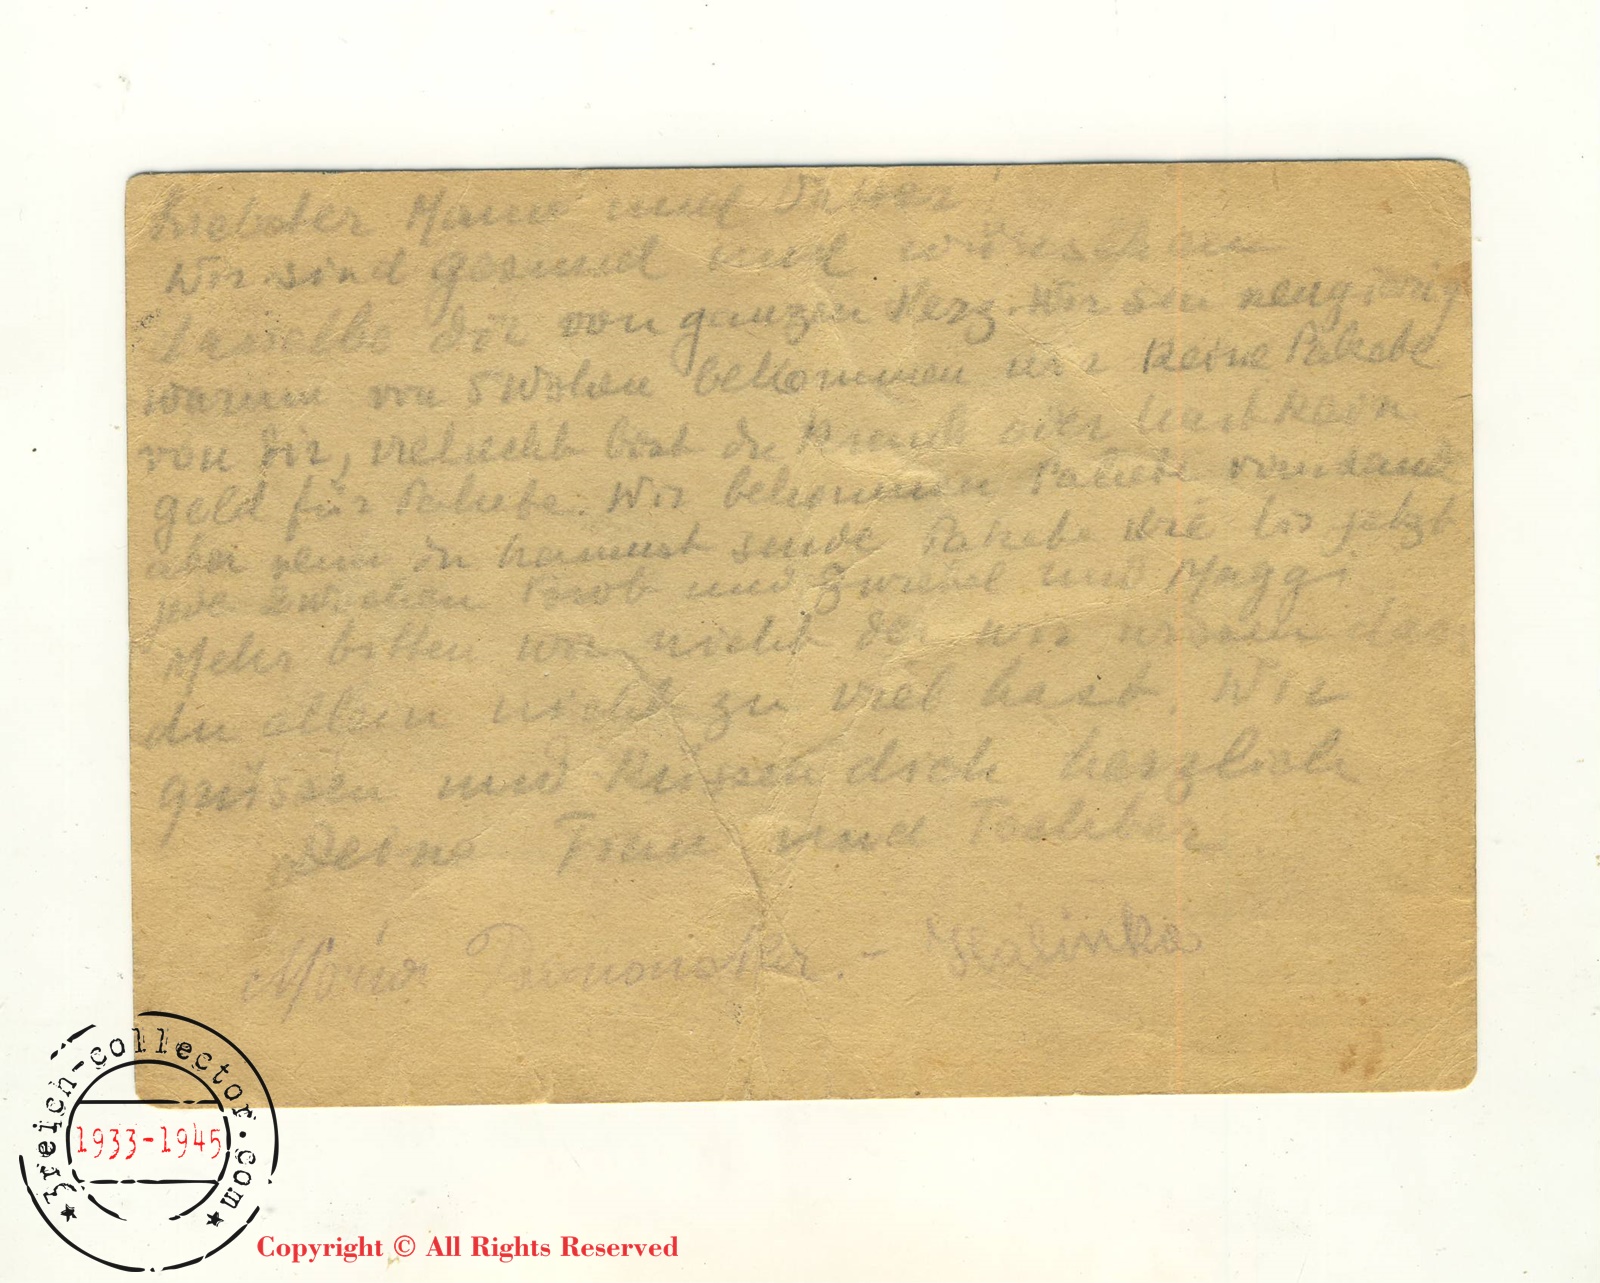 Liebster Mann und Vater!
Wir sind gesund und wünschen
dasselbe dir von ganzen Herz. Wir sin neugierig
warum von 5 Wochen bekommen wir keine Pakete
von dir, vieleicht bist du krank oder hast kein
geld für Pakete. Wir bekommen Pakete
aber wenn du kannst sende Pakete wie bis jetzt
Brot und Zwiebel und Maggi
Mehr bitten wir nicht den wir wissen das
du allein nicht zu viel hast. Wir
grüssen und küssen dich herzlich
Deine Frau und Tochter
Halinka
3reich-collector.com
1933-1945
Copyright © All Rights Reserved